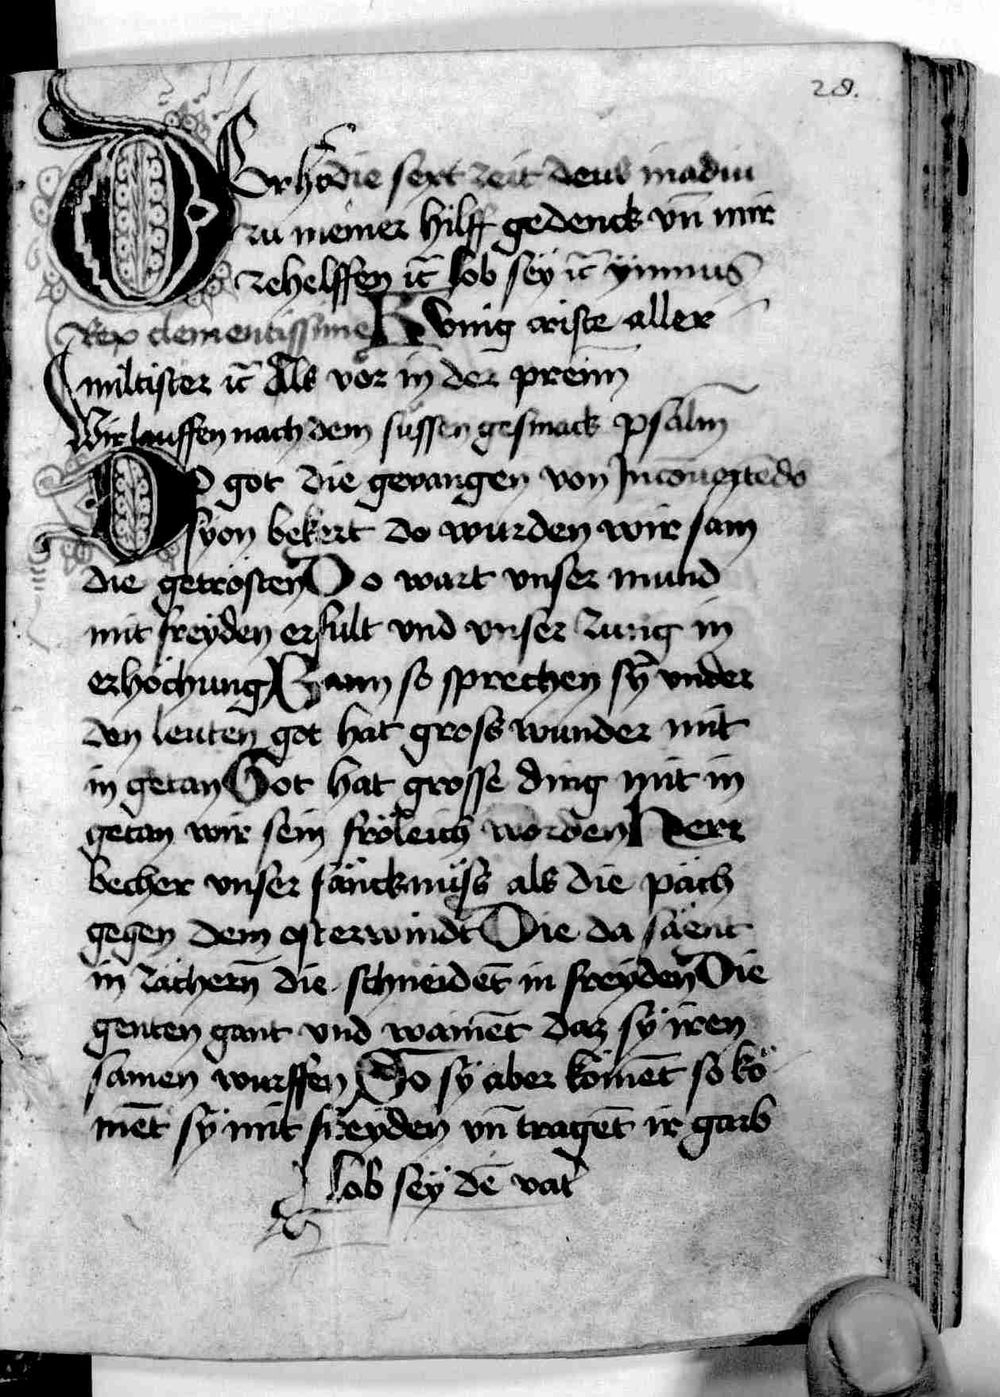 28.
Hör hö die sext zeit deus in adiu
zu meiner hilff gedenck vn̄ mir
zehelffen ic̄ lob seÿ ic̄ ÿmnus
Rex clementissime Kunig criste aller
miltister ic̄ Als vor in der preim̄
Wir lauffen nach dem süssen gesmack psalm̄
Do got die gevangen von In conuertēdo
syon bekert do wurden wir sam
die getrösten Do wart vnser mund
mit freÿden erfult vnd vnser zung in
erhöchung Wann so sprechen sÿ vnder
den leuten got hat gross wunder mit
in getan Got hat grosse ding mit in
getan wir sein fröleich worden Herr
becher vnser fänckmüss als die päch
gegen dem osterwindt Die da säent
in zächern̄ die schneidēt in freÿden Die
genten gant vnd wainēt daz sÿ iren
samen wurffen So sÿ aber kömēt so kö
mēt sÿ mit freÿden vn̄ tragēt ir garb
lob seÿ dē vat